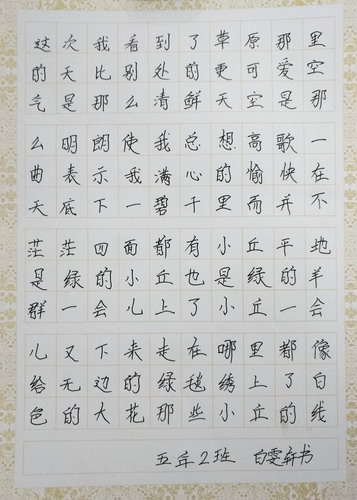 这次我看到了草原那里
的天比别处的更可爱空
气是那么清鲜天空是那
么明朗使我总想高歌一
曲表示我满心的愉快在
天底下一碧千里而并不
茫茫四面都有小丘平地
是绿的小丘也是绿的羊
群一会儿上了小丘一会
儿又下来走在哪里都像
给无边的绿毯绣上了白
色的大花那些小丘的线
五年2班 白雯轩书